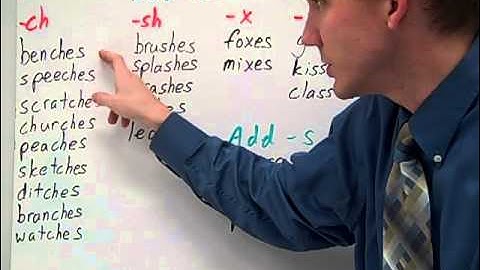 -ch
benches
speeches
scratches
churches
peaches
sketches
ditches
branches
watches
-sh
brushes
splashes
-x
foxes
mixes
Add -s